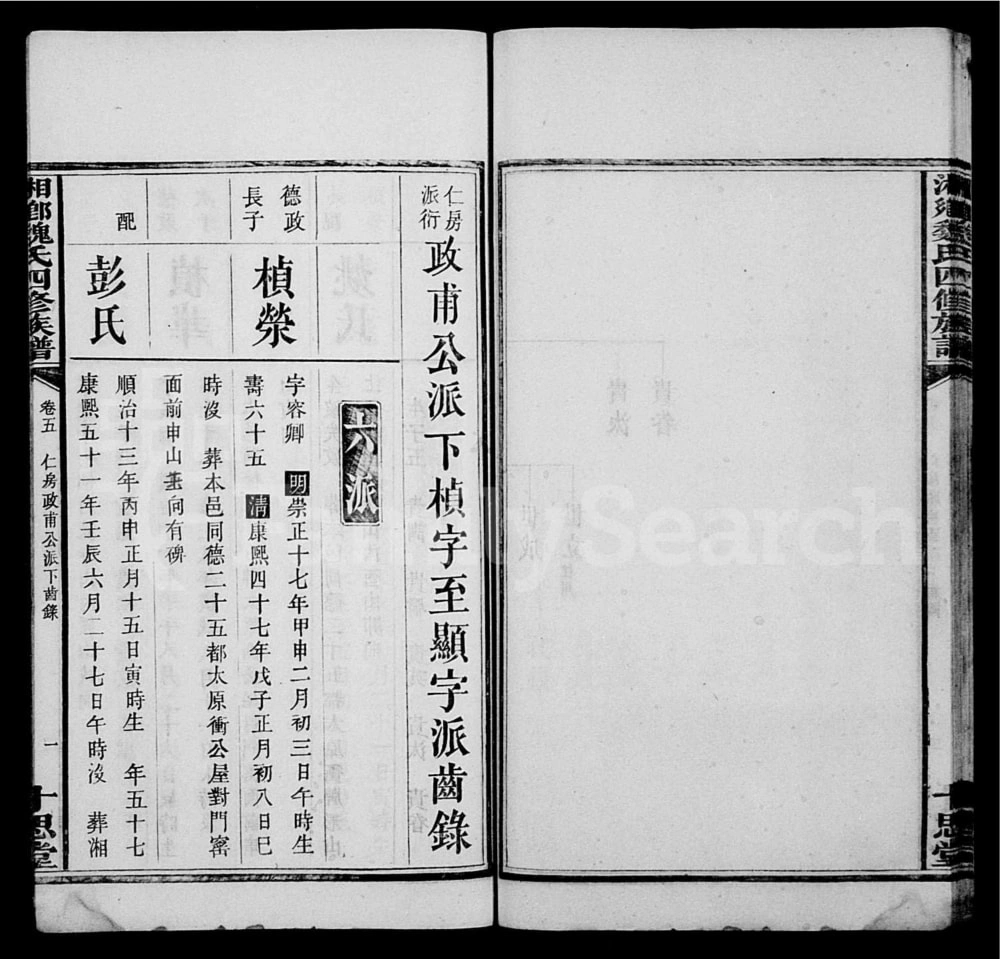 湘鄉魏氏四修族譜
十思堂
仁房派衍
政甫公派下楨字至顯字派齒錄
六派
德政長子
楨榮
字容卿　明崇正十七年甲申二月初三日午時生
壽六十五　清康熙四十七年戊子正月初八日巳
時沒　葬本邑同德二十五都太原衝公屋對門窰
面前申山　向有碑
配
彭氏
順治十三年丙申正月十五日寅時生　年五十七
康熙五十一年壬辰六月二十七日午時沒　葬湘
湘鄉魏氏四修族譜
卷五　仁房政甫公派下齒錄　一
十思堂
MySearch